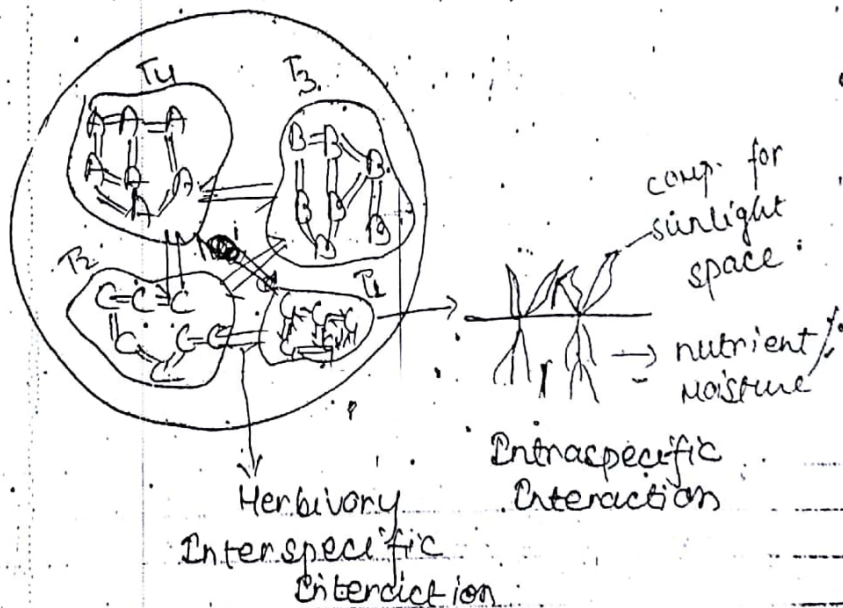 T4
T3
A A A
A A A
A
B B B
B B B
B
T2
T1
C C C
C C C
C
comp. for
sunlight
space
nutrient
Moisture
Intraspecific
Interaction
Herbivory
Interspecific
Interaction